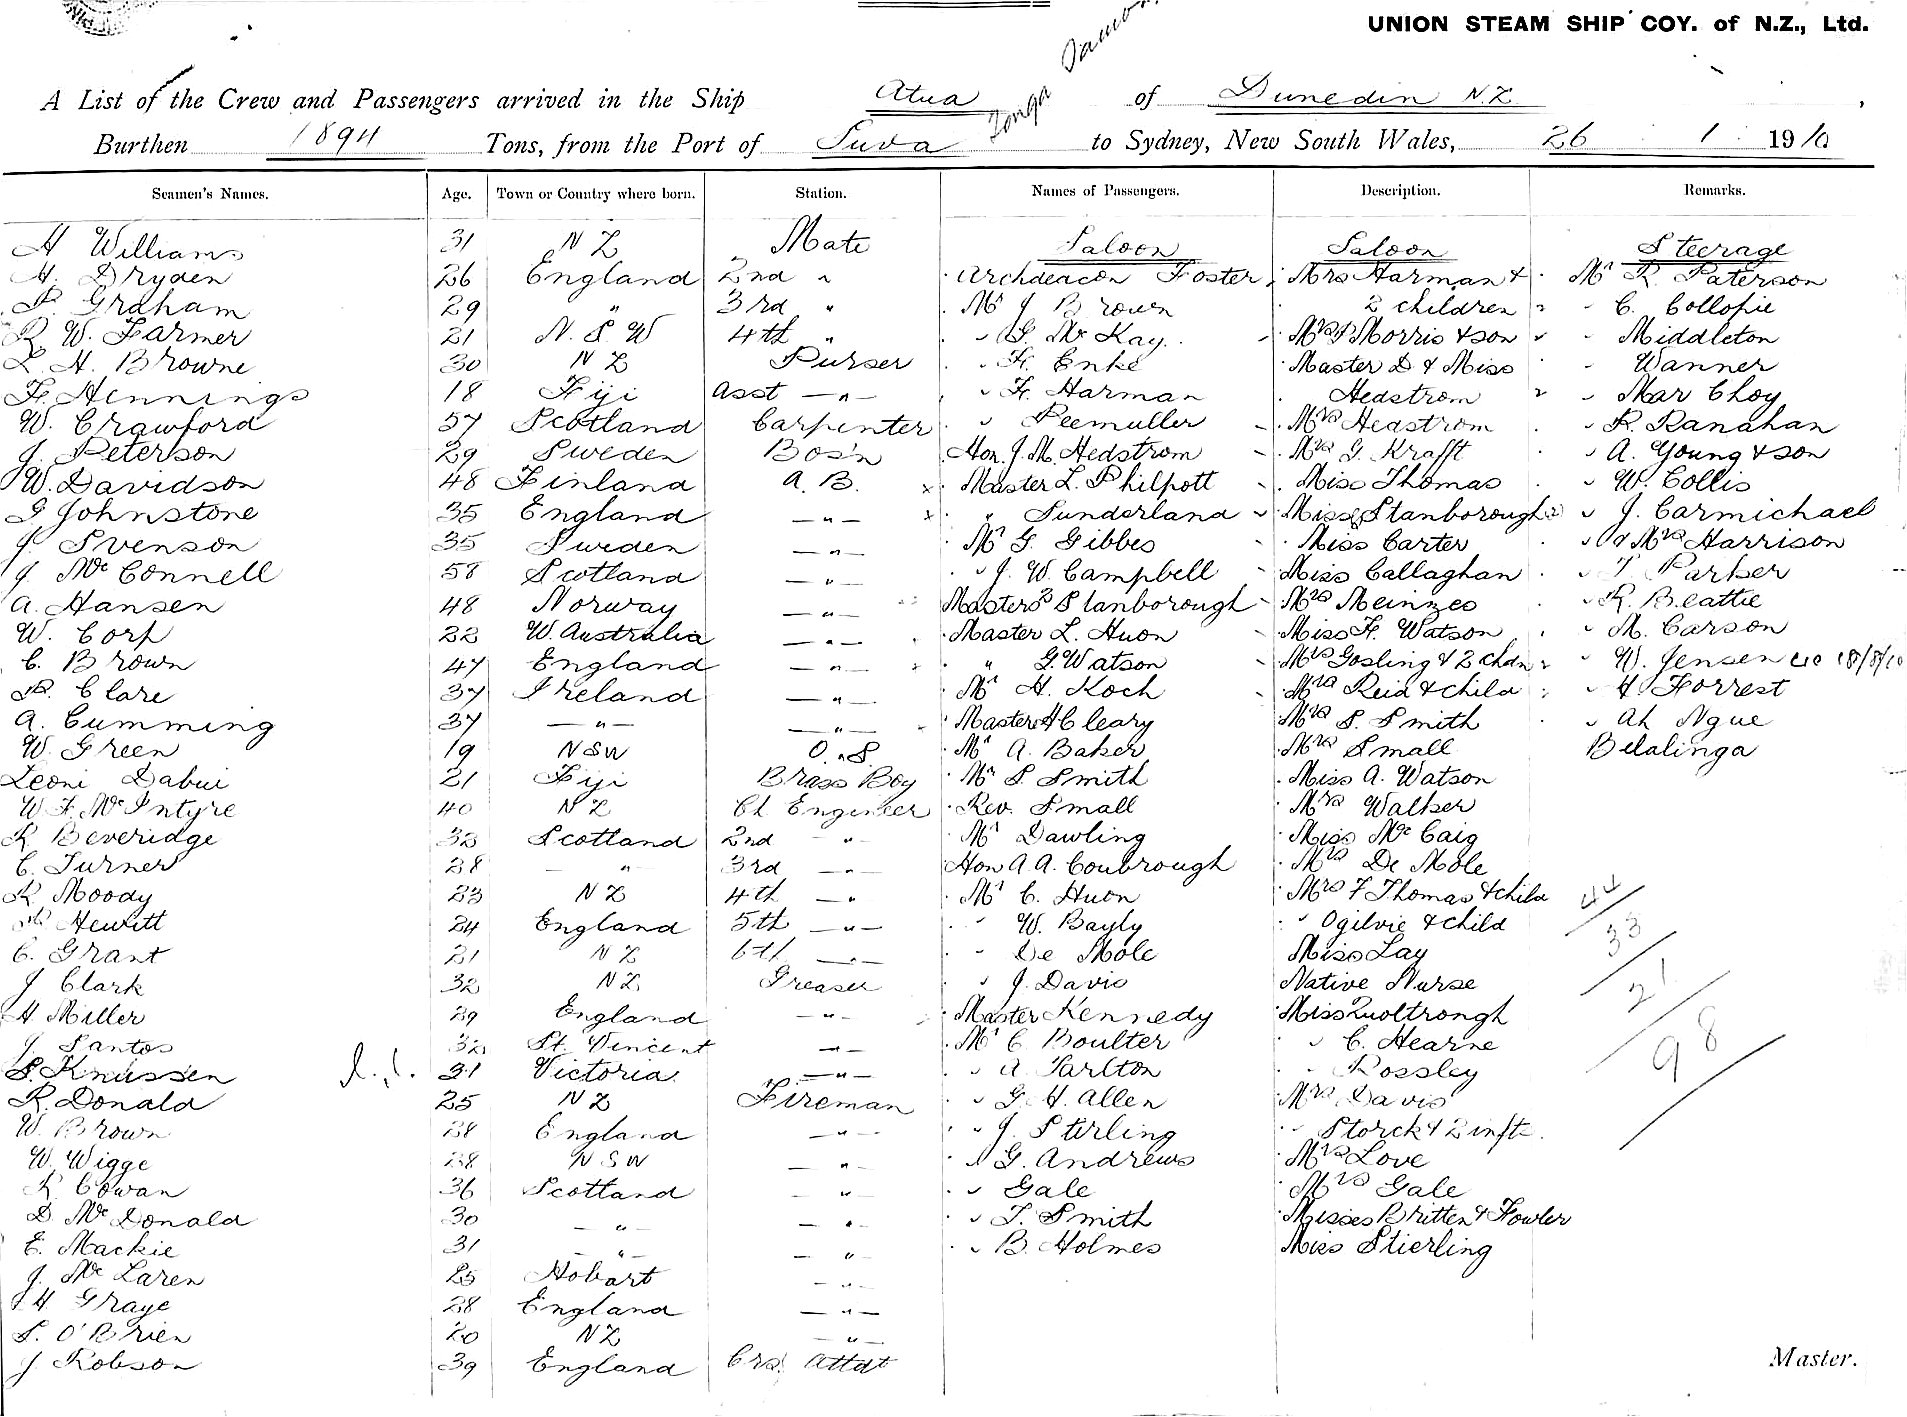 UNION STEAM SHIP COY. of N.Z., Ltd.
Tonga
A List of the Crew and Passengers arrived in the Ship Atua of Dunedin N.Z.
Burthen 1894 Tons, from the Port of Suva to Sydney, New South Wales, 26 1 1910
Seamen's Names. Age. Town or Country where born. Station. Names of Passengers. Description. Remarks.
H Williams 31 N Z Mate Saloon Saloon Steerage
H. Dryden 26 England 2nd " Archdeacon Foster Mrs Harman & Mr R. Paterson
P. Graham 29 " 3rd " Mr J Brown 2 children " C. Collopie
R. W. Farmer 21 N. S. W 4th " " G. Mc Kay. Mrs Morris & son " Middleton
L. H. Browne 30 N Z Purser " H. Enke Master D & Miss " Wanner
H. Hennings 18 Fiji Asst " " H. Harman Hedstrom " Mar Choy
W. Crawford 57 Scotland Carpenter " Peemuller Mrs Hedstrom " R. Ranahan
J. Peterson 29 Sweden Bos'n Hon. J. M. Hedstrom Mrs G. Krafft " A. Young & son
W. Davidson 48 Finland A. B. Master L. Philpott Miss Thomas " W. Collis
G Johnstone 35 England " " Sunderland Misses Stanborough " J. Carmichael
J. Svenson 35 Sweden " Mr G. Gibbes Miss Carter " & Mrs Harrison
J. Mc Connell 58 Scotland " " J. W. Campbell Miss Callaghan " T. Parker
A. Hansen 48 Norway " Masters Stanborough Mrs Meinzes " R. Beattie
W. Corp 22 W. Australia " Master L. Huon Miss H. Watson " M. Carson
C. Brown 47 England " " G. Watson Mrs Gosling & 2 chdn " W. Jensen 18/8/10
P. Clare 37 Ireland " Mr H. Koch Mrs Reid & child " H Forrest
A. Cumming 37 " " Master H Cleary Mrs S. Smith " Ah Ngue
W. Green 19 NSW O. S. Mr A. Baker Mrs Small Belalinga
Leoni Dabui 21 Fiji Brass Boy Mr S. Smith Miss A. Watson
W. F. Mc Intyre 40 N Z Ch Engineer Rev. Small Mrs Walker
R Beveridge 33 Scotland 2nd " Mr Dawling Miss Mc Caig
C. Turner 28 " 3rd " Hon A. A. Coubrough Mrs De Mole
R Moody 23 N Z 4th " Mr C. Huon Mrs F Thomas & child 44
Hewitt 24 England 5th " " W. Bayly " Ogilvie & child 33
C. Grant 21 N Z 6th " " De Mole Miss Lay
J Clark 32 N Z Greaser " J. Davis Native Nurse 21
H Miller 29 England " Master Kennedy Miss Quoltrough
J. Santos 32 St. Vincent " Mr C. Boulter " C. Hearne 98
S. Knussen 31 Victoria " " A. Tarlton " Rossley
R. Donald 25 N Z Fireman " G. H. Allen Mrs Davis
W. Brown 28 England " " J. Stirling " Storck & 2 infts.
W. Wigge 28 N S W " " G. Andrews Mrs Love
R. Cowan 36 Scotland " " Gale Mrs Gale
D. Mc Donald 30 " " " T. Smith Misses Britten & Fowler
E. Mackie 31 " " " B. Holmes Miss Stierling
J. Mc Laren 25 Hobart "
J H Graye 28 England "
S. O'Brien 20 NZ "
J Robson 39 England Crs. Attdt Master.